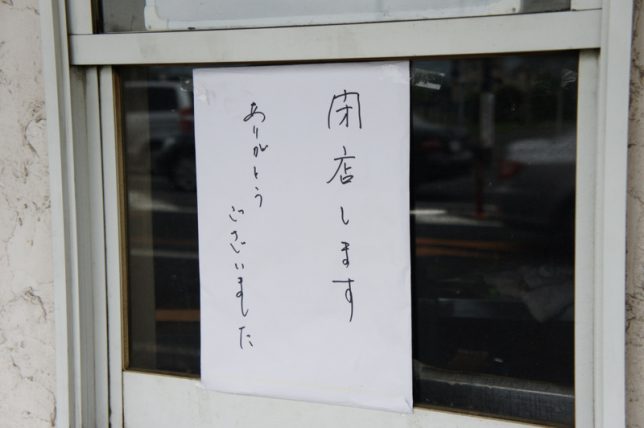 閉店します
ありがとう
ございました